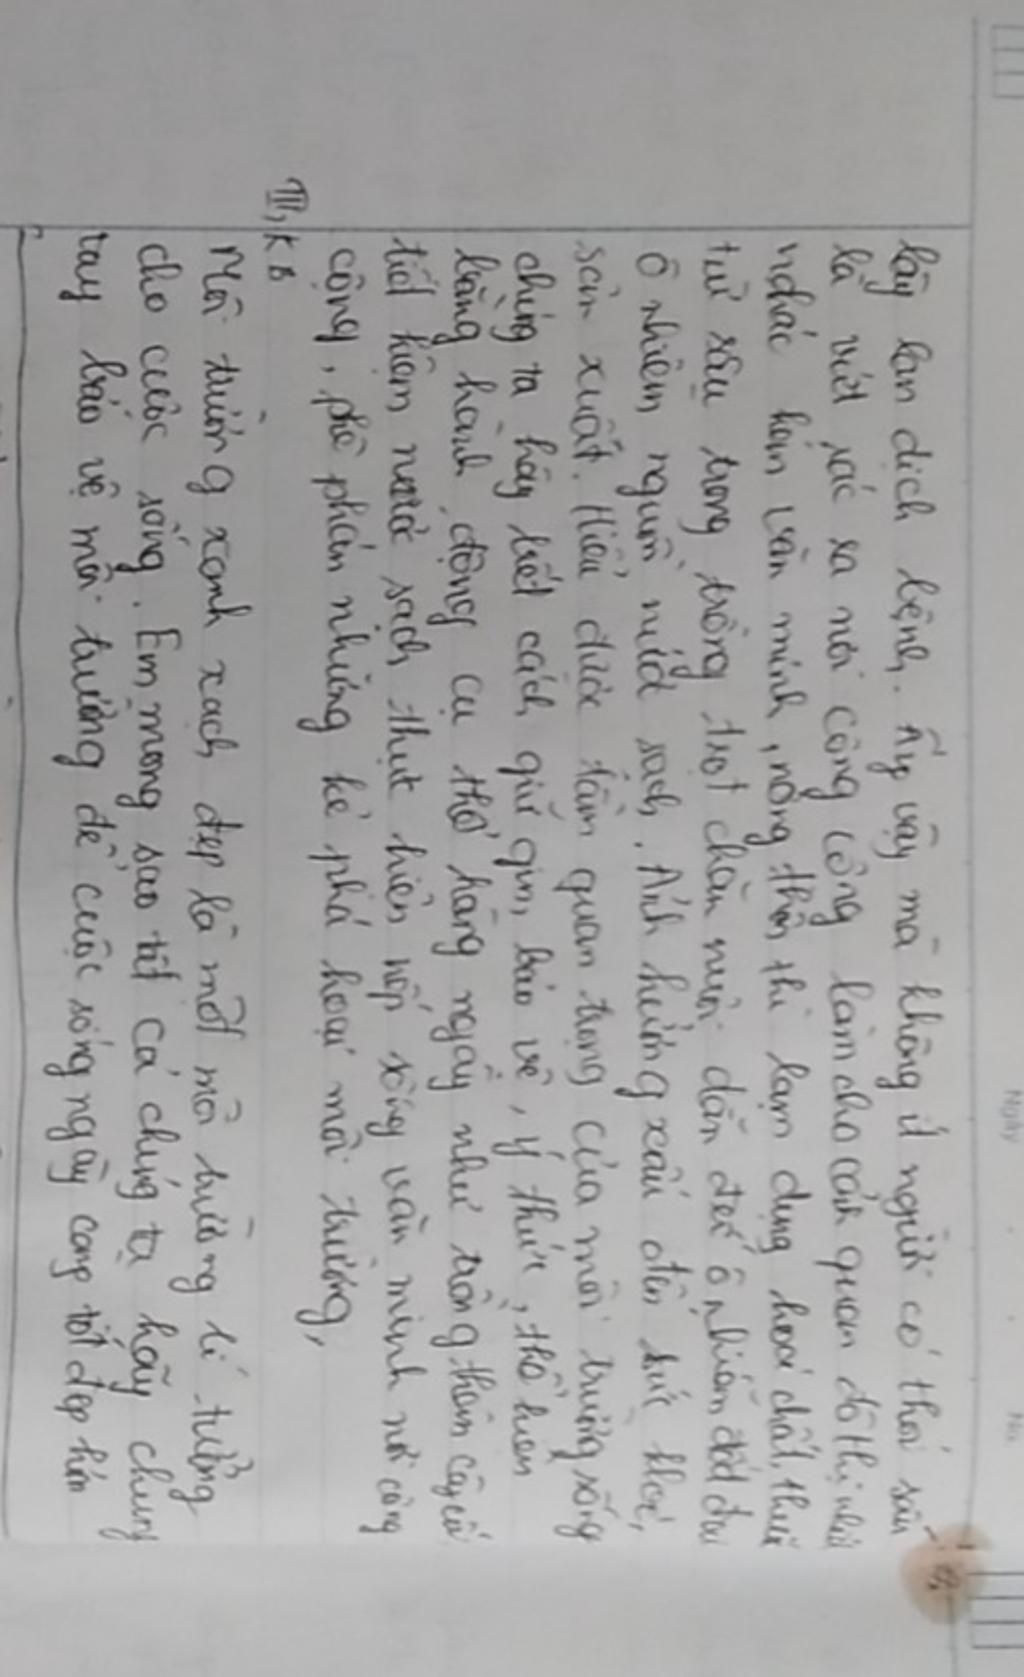 lây lan dịch bệnh. Ấy vậy mà không ít người có thói xấu
là vứt rác ra nơi công cộng làm cho cảnh quan đô thị
nhếch kém văn minh, nông thôn thì lạm dụng hoá chất, thuốc
trừ sâu trong trồng trọt chăn nuôi dẫn đến ô nhiễm đất đai
ô nhiễm nguồn nước sạch. Ảnh hưởng xấu đến sức khoẻ,
sản xuất. Hiểu được tầm quan trọng của môi trường sống
chúng ta hãy biết cách giữ gìn, bảo vệ, ý thức, thể hiện
bằng hành động cụ thể hằng ngày như trồng thêm cây cối
tiết kiệm nước sạch thực hiện nếp sống văn minh nơi công
cộng, phê phán những kẻ phá hoại môi trường,
III, KB
Môi trường xanh xạch đẹp là một môi trường lí tưởng
cho cuộc sống. Em mong sao tất cả chúng ta hãy chung
tay bảo vệ môi trường để cuộc sống ngày càng tốt đẹp hơn
Ngày
No.